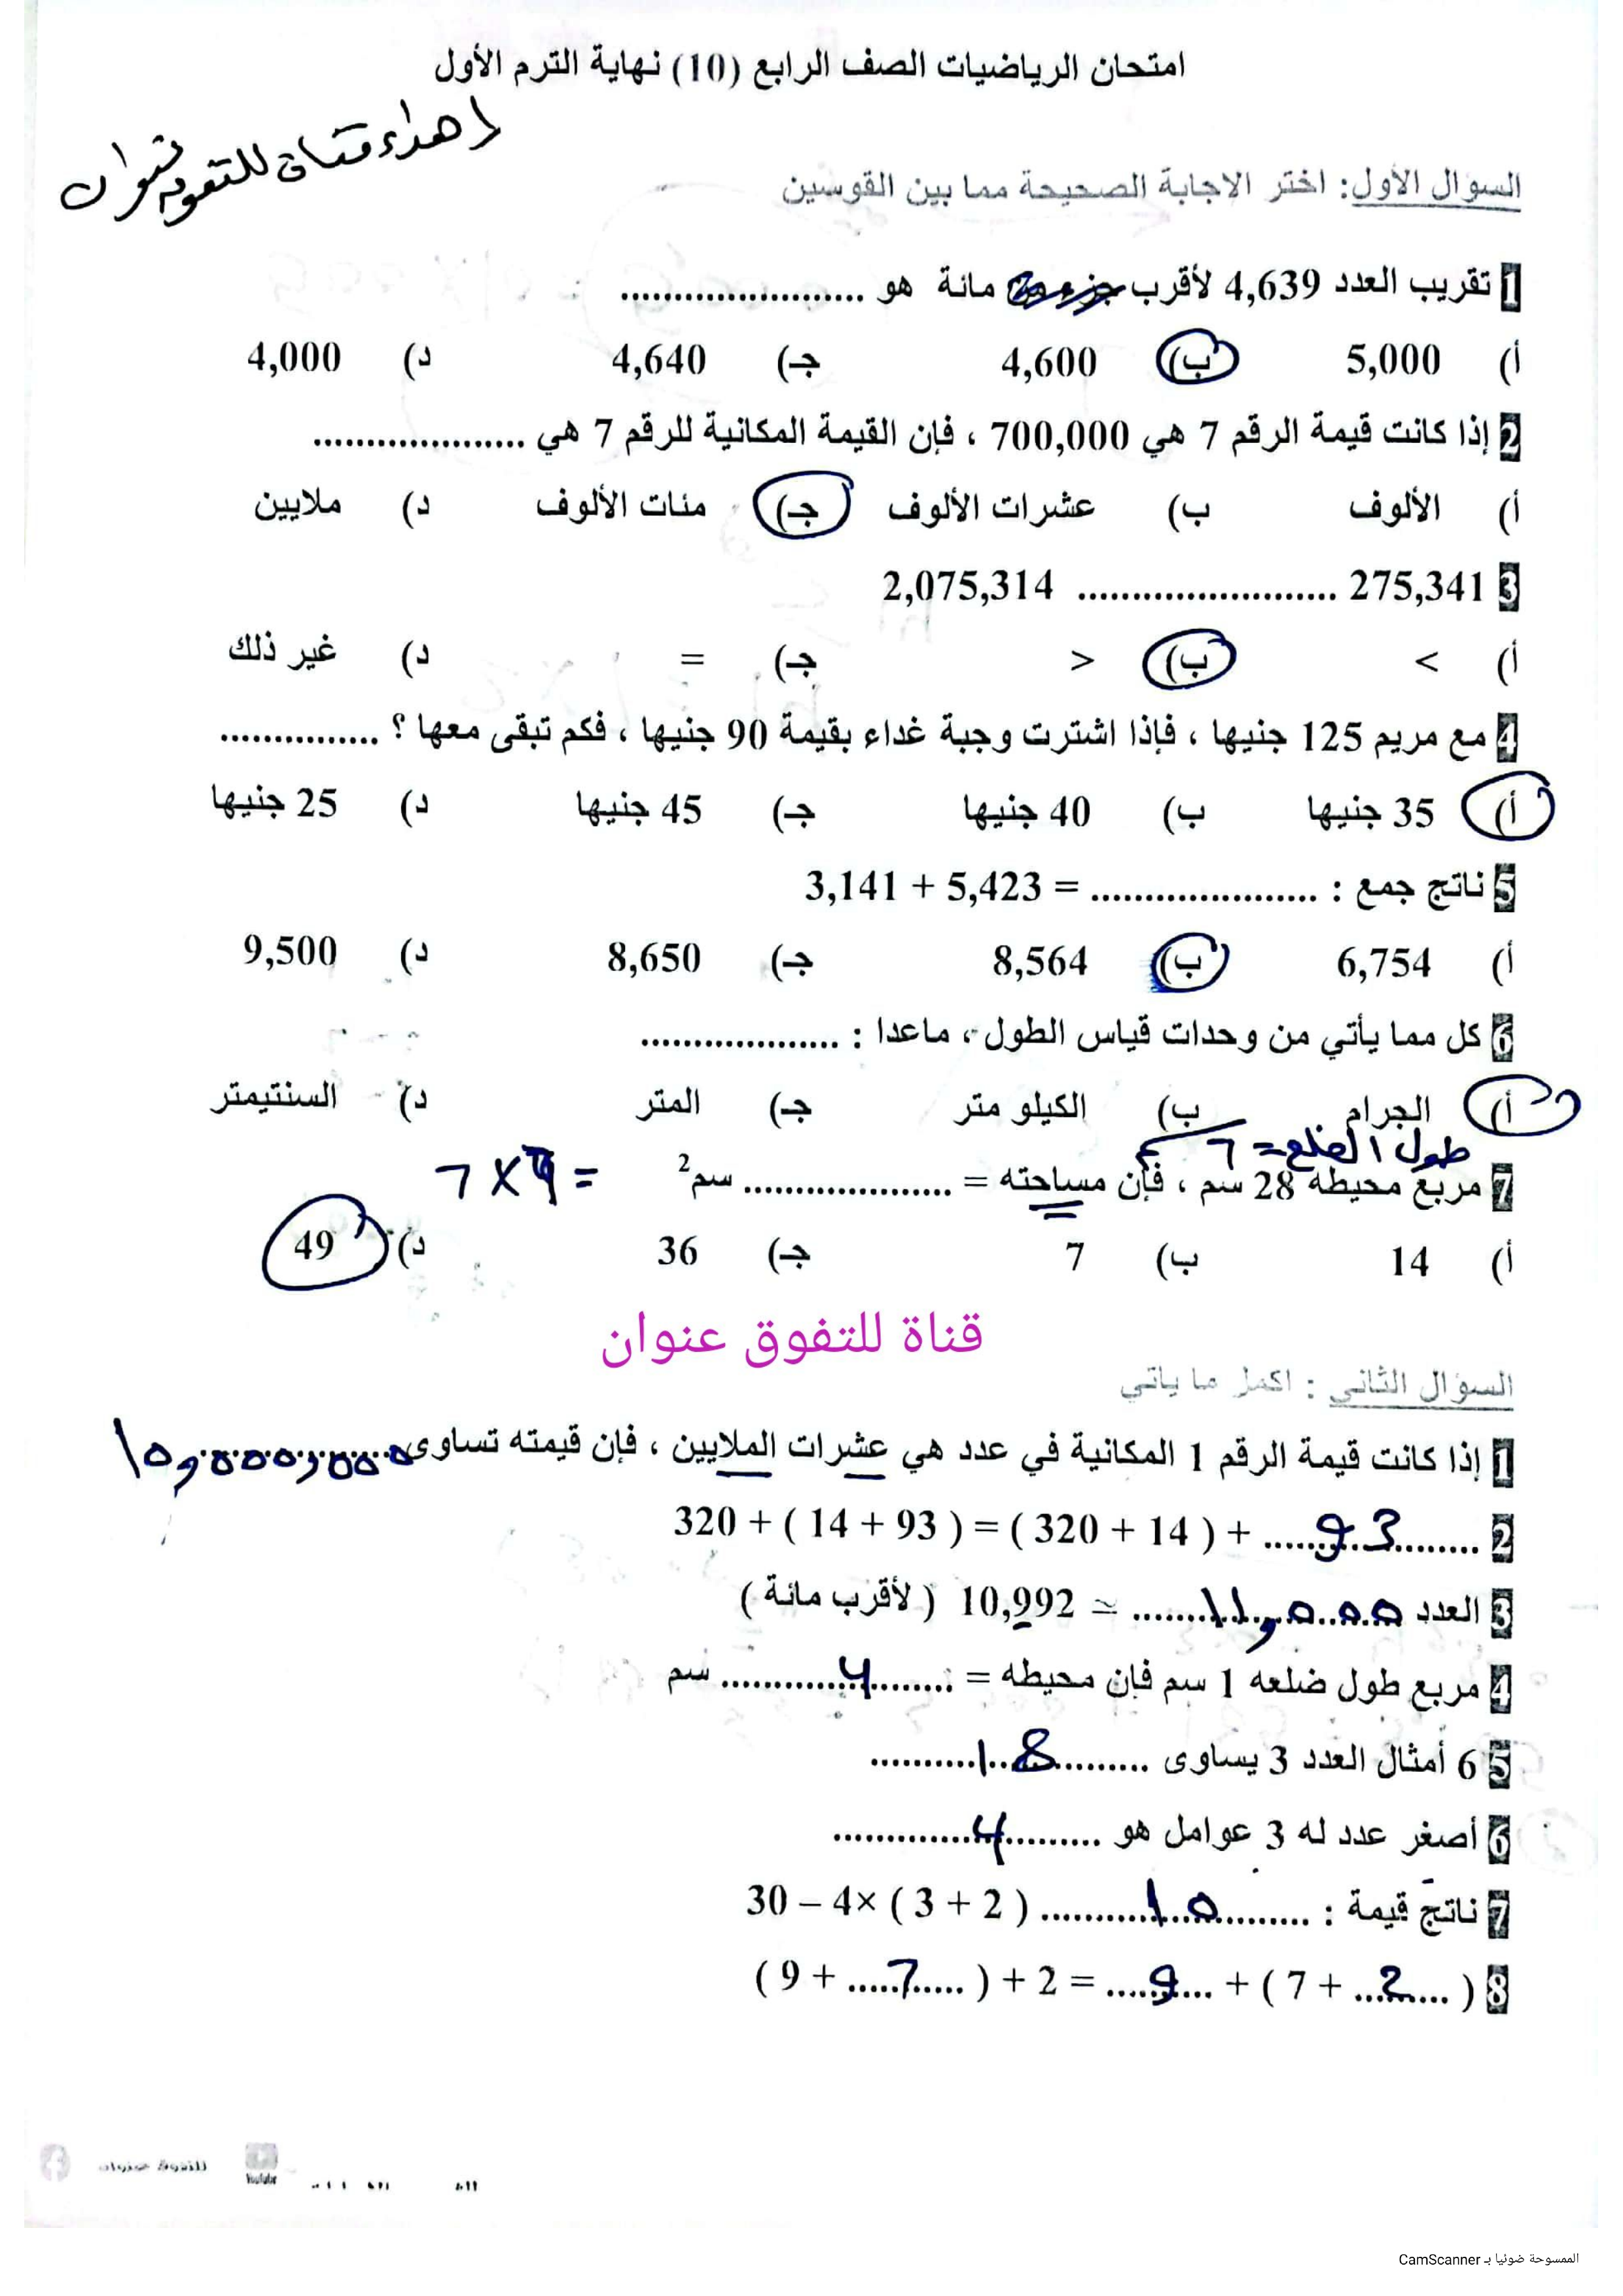 امتحان الرياضيات الصف الرابع (10) نهاية الترم الأول
اهداء قناة للتفوق عنوان
السؤال الأول: اختر الاجابة الصحيحة مما بين القوسين
1 تقريب العدد 4,639 لأقرب جزء من مائة هو ......................
أ) 5,000 ب) 4,600 جـ) 4,640 د) 4,000
2 إذا كانت قيمة الرقم 7 هي 700,000 ، فإن القيمة المكانية للرقم 7 هي ....................
أ) الألوف ب) عشرات الألوف جـ) مئات الألوف د) ملايين
3 275,341 ........................ 2,075,314
أ) > ب) < جـ) = د) غير ذلك
4 مع مريم 125 جنيها ، فإذا اشترت وجبة غداء بقيمة 90 جنيها ، فكم تبقى معها ؟ ...............
أ) 35 جنيها ب) 40 جنيها جـ) 45 جنيها د) 25 جنيها
5 ناتج جمع : ..................... = 3,141 + 5,423
أ) 6,754 ب) 8,564 جـ) 8,650 د) 9,500
6 كل مما يأتي من وحدات قياس الطول ، ماعدا : ...................
أ) الجرام ب) الكيلو متر جـ) المتر د) السنتيمتر
طول الضلع = 7
7 مربع محيطه 28 سم ، فإن مساحته = .................... سم² = 7×7
أ) 14 ب) 7 جـ) 36 د) 49
قناة للتفوق عنوان
السؤال الثانى : اكمل ما ياتي
1 إذا كانت قيمة الرقم 1 المكانية في عدد هي عشرات الملايين ، فإن قيمته تساوى 10,000,000
2 320 + ( 14 + 93 ) = ( 320 + 14 ) + ......93........
3 العدد 10,992 ≃ .......11,000 ( لأقرب مائة )
4 مربع طول ضلعه 1 سم فإن محيطه = ........4........... سم
5 6 أمثال العدد 3 يساوى .........18..........
6 أصغر عدد له 3 عوامل هو .........4.............
7 ناتج قيمة : 30 – 4× ( 3 + 2 ) ..........10.........
8 ( 9 + .....7..... ) + 2 = .....9.... + ( 7 + ...2...... )
للتفوق عنوان
YouTube
الممسوحة ضوئيا بـ CamScanner